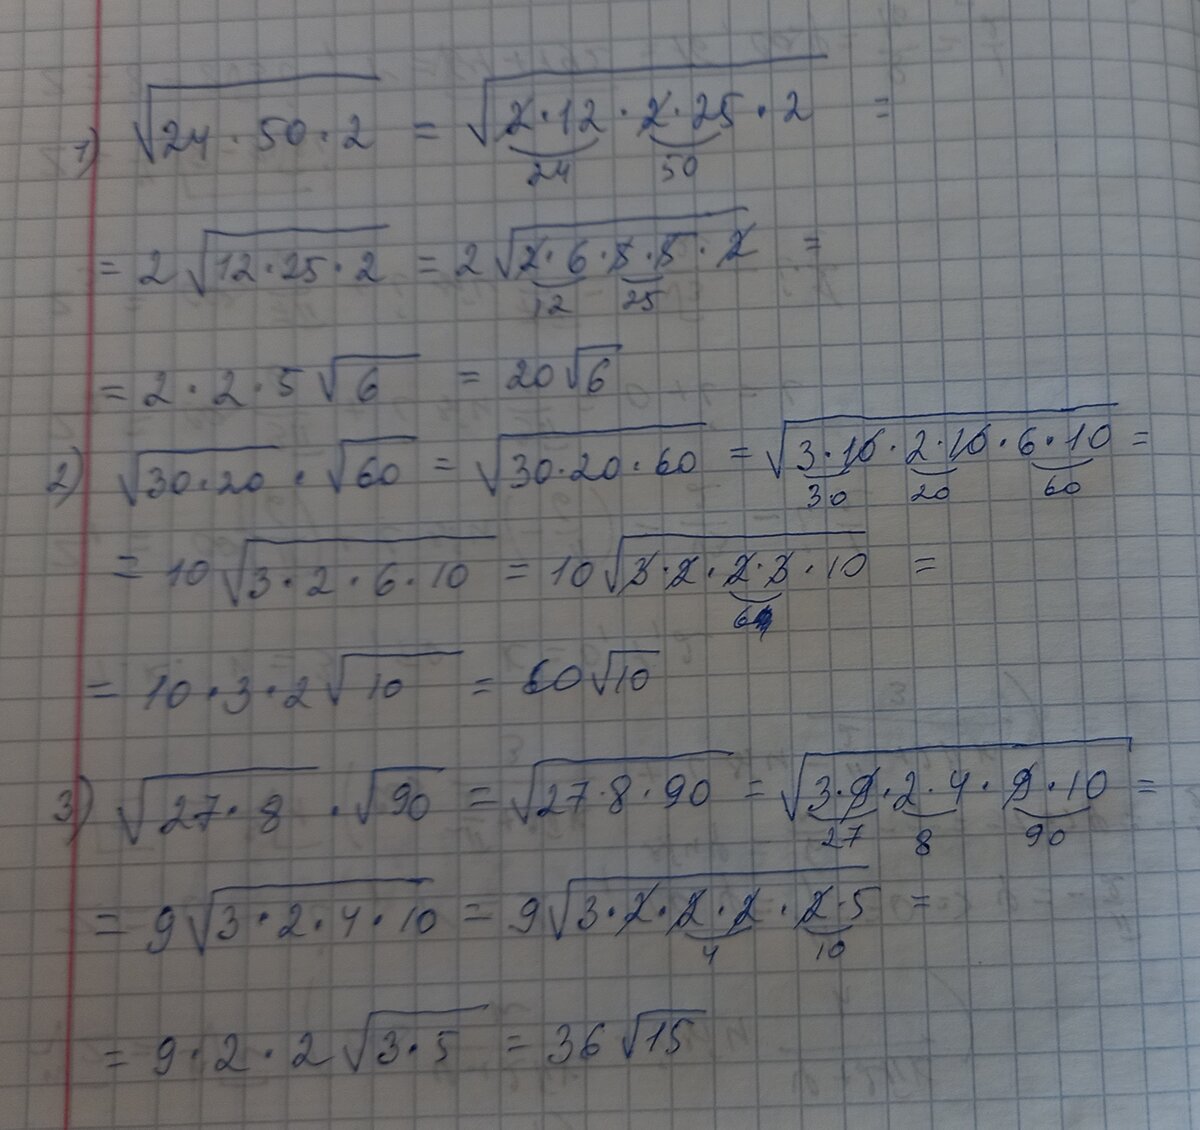 1) √24·50·2 = √2·12·2·25·2 =
24 50
= 2√12·25·2 = 2√2·6·5·5·2 =
12 25
= 2·2·5√6 = 20√6
2) √30·20 · √60 = √30·20·60 = √3·10·2·10·6·10 =
30 20 60
= 10√3·2·6·10 = 10√3·2·2·3·10 =
6
= 10·3·2√10 = 60√10
3) √27·8 · √90 = √27·8·90 = √3·9·2·4·9·10 =
27 8 90
= 9√3·2·4·10 = 9√3·2·2·2·2·5 =
4 10
= 9·2·2√3·5 = 36√15